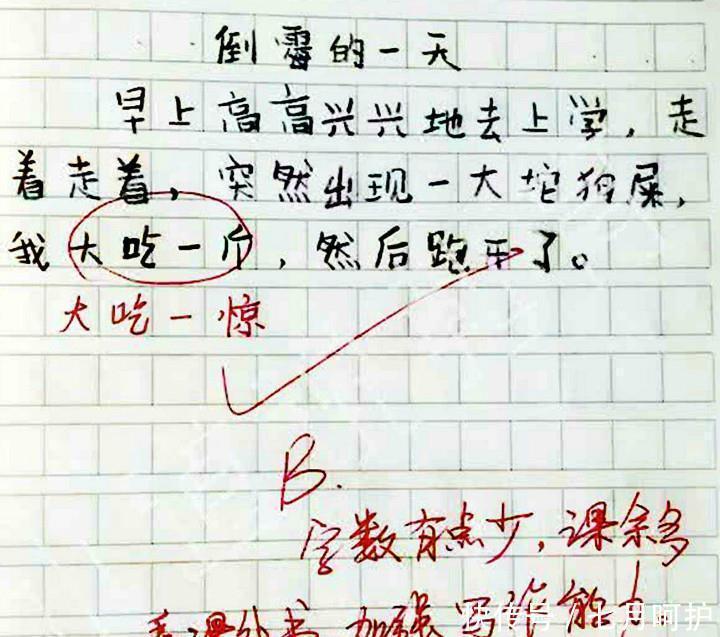 倒霉的一天
早上高高兴兴地去上学，走
着走着，突然出现一大坨狗屎，
我大吃一斤，然后跑开了。
大吃一惊
B.
字数有点少，课余多
看课外书，加强写作能力
快传号／七月呵护